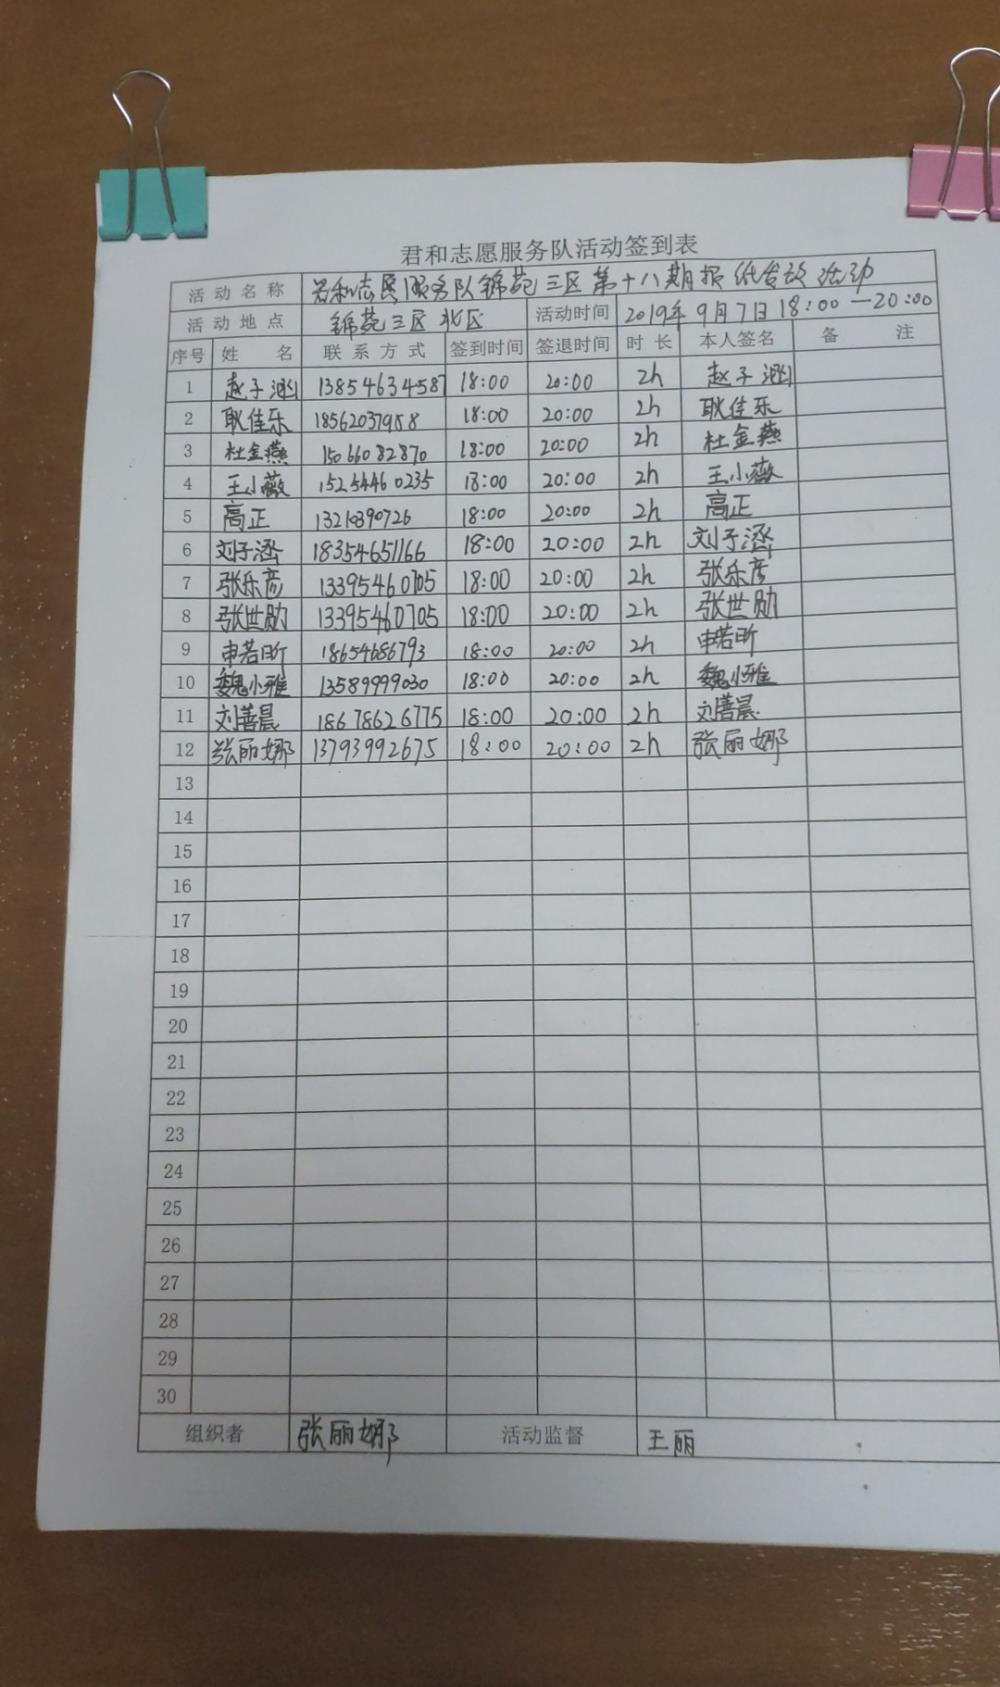 君和志愿服务队活动签到表
活动名称 君和志愿服务队锦苑三区第十八期报纸发放活动
活动地点 锦苑三区北区 活动时间 2019年9月7日18:00—20:00
序号 姓名 联系方式 签到时间 签退时间 时长 本人签名 备注
1 赵子涵 13854634587 18:00 20:00 2h 赵子涵
2 耿佳乐 18562037958 18:00 20:00 2h 耿佳乐
3 杜金燕 15066082870 18:00 20:00 2h 杜金燕
4 王小薇 15254460235 18:00 20:00 2h 王小薇
5 高正 18:00 20:00 2h 高正
6 刘子涵 18354651166 18:00 20:00 2h 刘子涵
7 张乐彦 13395460705 18:00 20:00 2h 张乐彦
8 张世勋 13395460705 18:00 20:00 2h 张世勋
9 申若昕 18654686793 18:00 20:00 2h 申若昕
10 魏小雅 13589999030 18:00 20:00 2h 魏小雅
11 刘善晨 18678626775 18:00 20:00 2h 刘善晨
12 张丽娜 13793992675 18:00 20:00 2h 张丽娜
13
14
15
16
17
18
19
20
21
22
23
24
25
26
27
28
29
30
组织者 张丽娜 活动监督 王丽